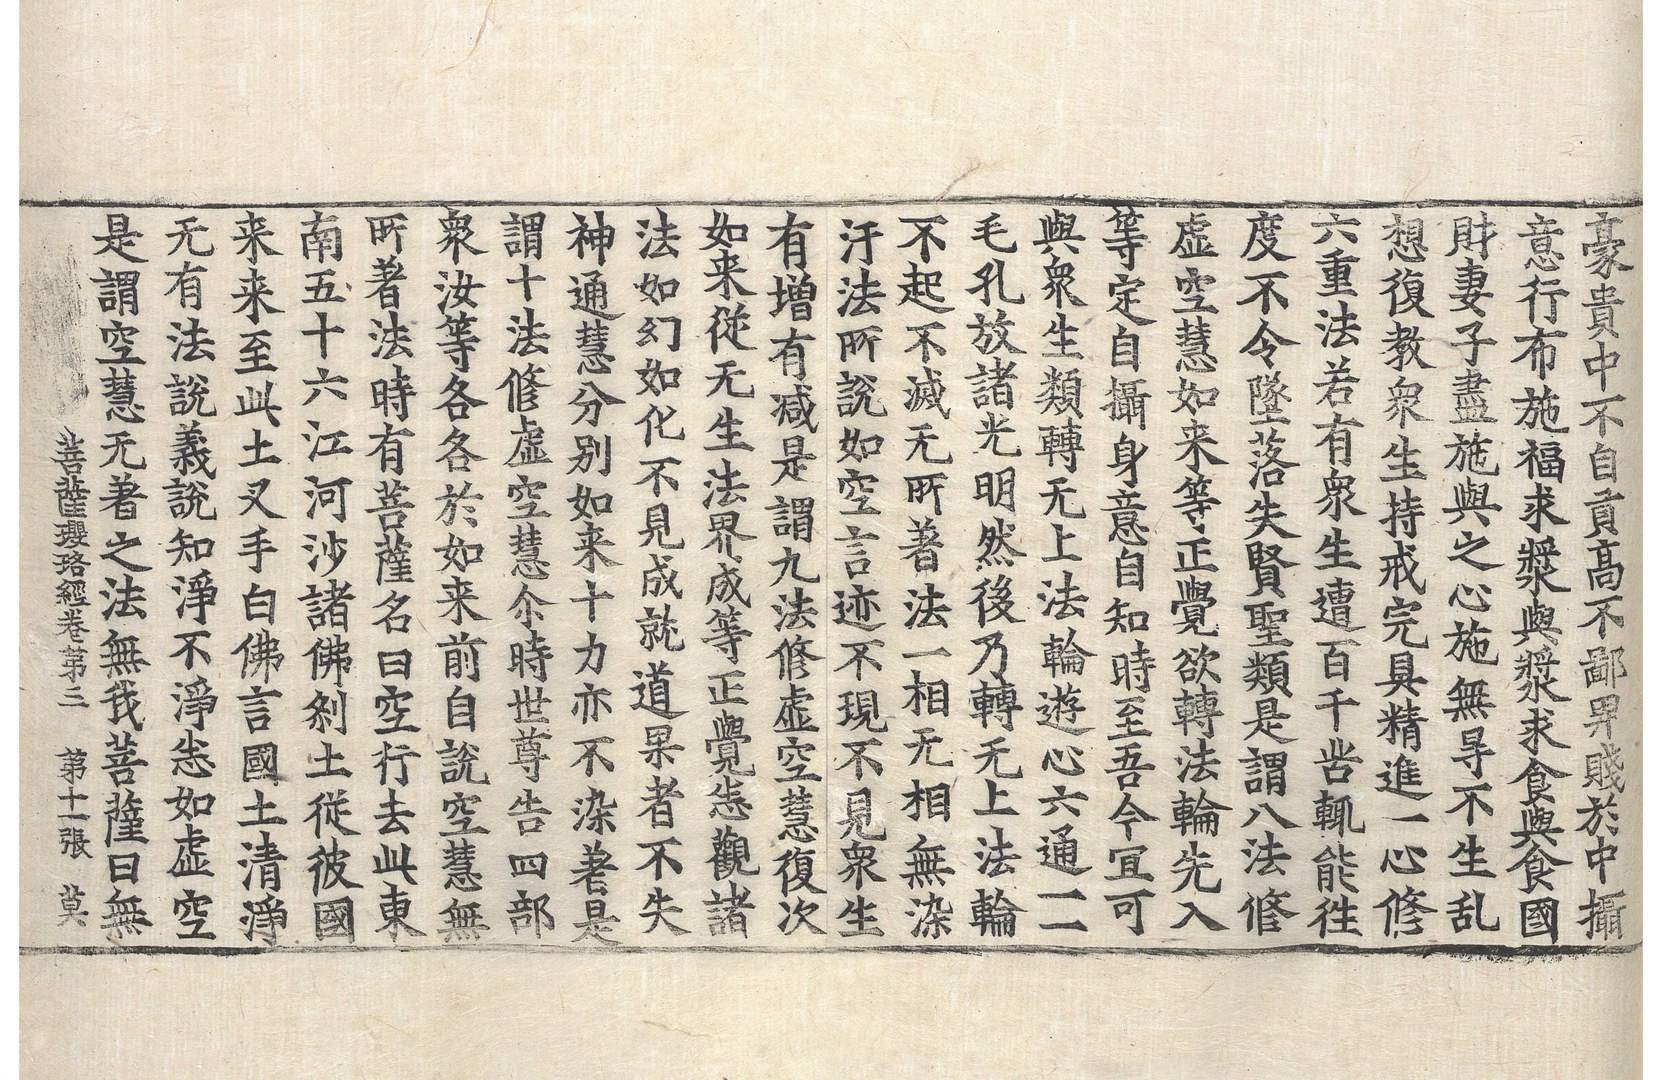 豪貴中不自貢高不鄙畀賤於中攝
意行布施福求漿與漿求食與食國
財妻子盡施與之心施無㝵不生乱
想復教衆生持戒完具精進一心修
六重法若有衆生遭百千苦輒能徃
度不令墜落失賢聖類是謂八法修
虛空慧如来等正覺欲轉法輪先入
等定自攝身意自知時至吾今宜可
與衆生類轉无上法輪遊心六通一一
毛孔放諸光明然後乃轉无上法輪
不起不滅无所著法一相无相無染
汙法所說如空言迹不現不見衆生
有增有减是謂九法修虛空慧復次
如来從无生法界成等正覺悉觀諸
法如幻如化不見成就道果者不失
神通慧分別如来十力亦不染著是
謂十法修虛空慧尒時世尊告四部
衆汝等各各於如来前自說空慧無
所著法時有菩薩名曰空行去此東
南五十六江河沙諸佛剎土從彼國
来来至此土叉手白佛言國土清淨
无有法說義說知淨不淨悉如虛空
是謂空慧无著之法無我菩薩曰無
菩薩瓔珞經卷第三 第十一張 莫